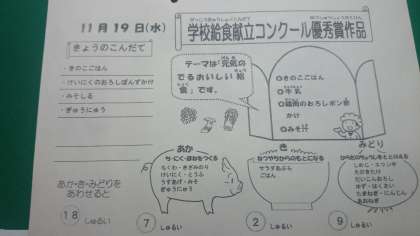 11月19日(水)
学校給食献立コンクール優秀賞作品
きょうのこんだて
・きのこごはん
・けいにくのおろしぽんずかけ
・みそしる
・ぎゅうにゅう
テーマは「元気の
でるおいしい給
食」です。
きのこごはん
牛乳
鶏肉のおろしポン酢
かけ
みそ汁
あか・き・みどりを
あわせると
18 しゅるい
あか
ち・にく・ほねをつくる
ちくわ・きざみのり
けいにく・とうふ
うすあげ・みそ
ぎゅうにゅう
7 しゅるい
き
ねつやちからのもとになる
サラダあぶら
ごはん
2 しゅるい
みどり
からだのちょうしをととのえる
しめじ・エリンギ
えのきたけ
だいこんおろし
ゆず・はくさい
たまねぎ・にんじん
あおねぎ
9 しゅるい